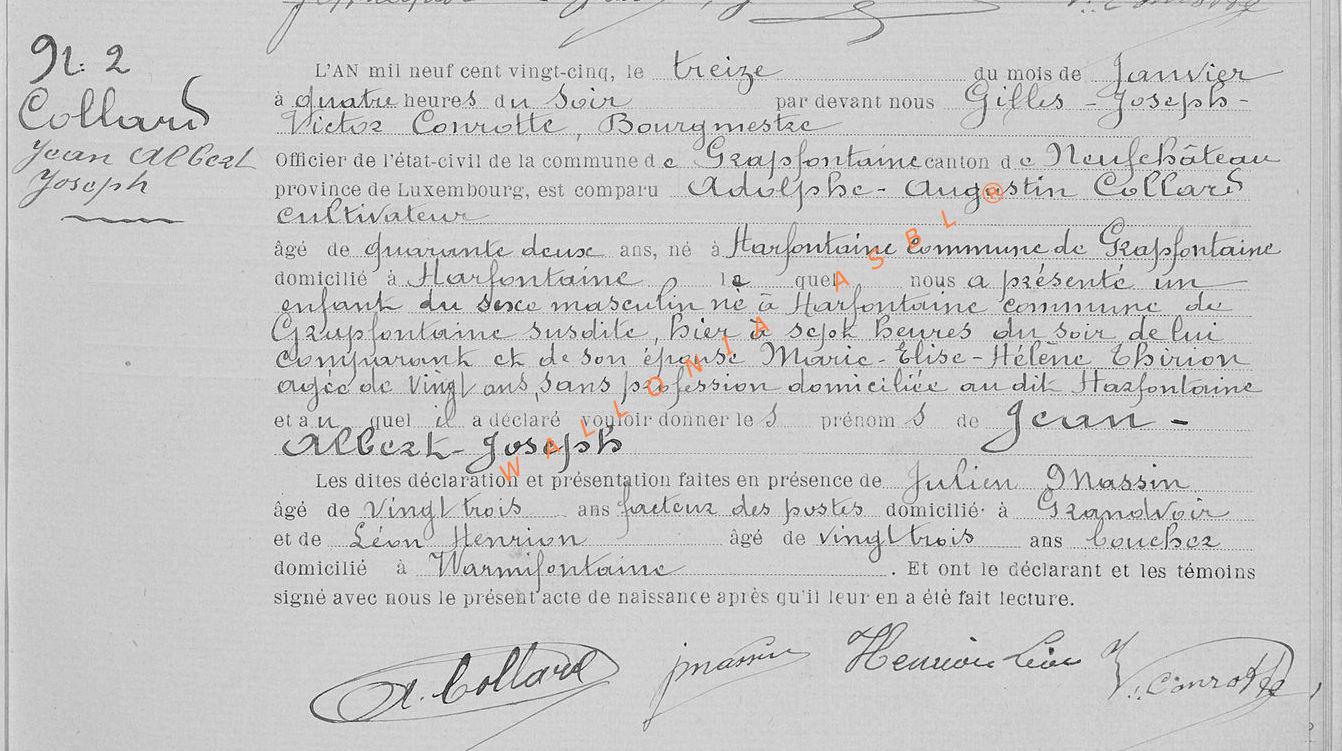 N: 2
Collard
Jean Albert
Joseph
L'AN mil neuf cent vingt-cinq, le treize du mois de Janvier
à quatre heures du Soir par devant nous Gilles - Joseph -
Victor Conrotte, Bourgmestre
Officier de l'état-civil de la commune de Grapfontaine canton de Neufchâteau
province de Luxembourg, est comparu Adolphe - Augustin Collard
cultivateur
âgé de quarante deux ans, né à Harfontaine commune de Grapfontaine
domicilié à Harfontaine le quel nous a présenté un
enfant du sexe masculin né à Harfontaine commune de
Grapfontaine susdite, hier à sept heures du soir de lui
comparant et de son épouse Marie - Elise - Hélène Thirion
agée de vingt ans, sans profession domiciliée au dit Harfontaine
et au quel il a déclaré vouloir donner les prénoms de Jean -
Albert - Joseph
Les dites déclaration et présentation faites en présence de Julien Massin
âgé de vingt trois ans facteur des postes domicilié à Grandvoir
et de Léon Henrion âgé de vingt trois ans boucher
domicilié à Warmifontaine. Et ont le déclarant et les témoins
signé avec nous le présent acte de naissance après qu'il leur en a été fait lecture.
A. Collard JMassin Henrion Léon V. Conrotte
WALLONIA ASBL ®